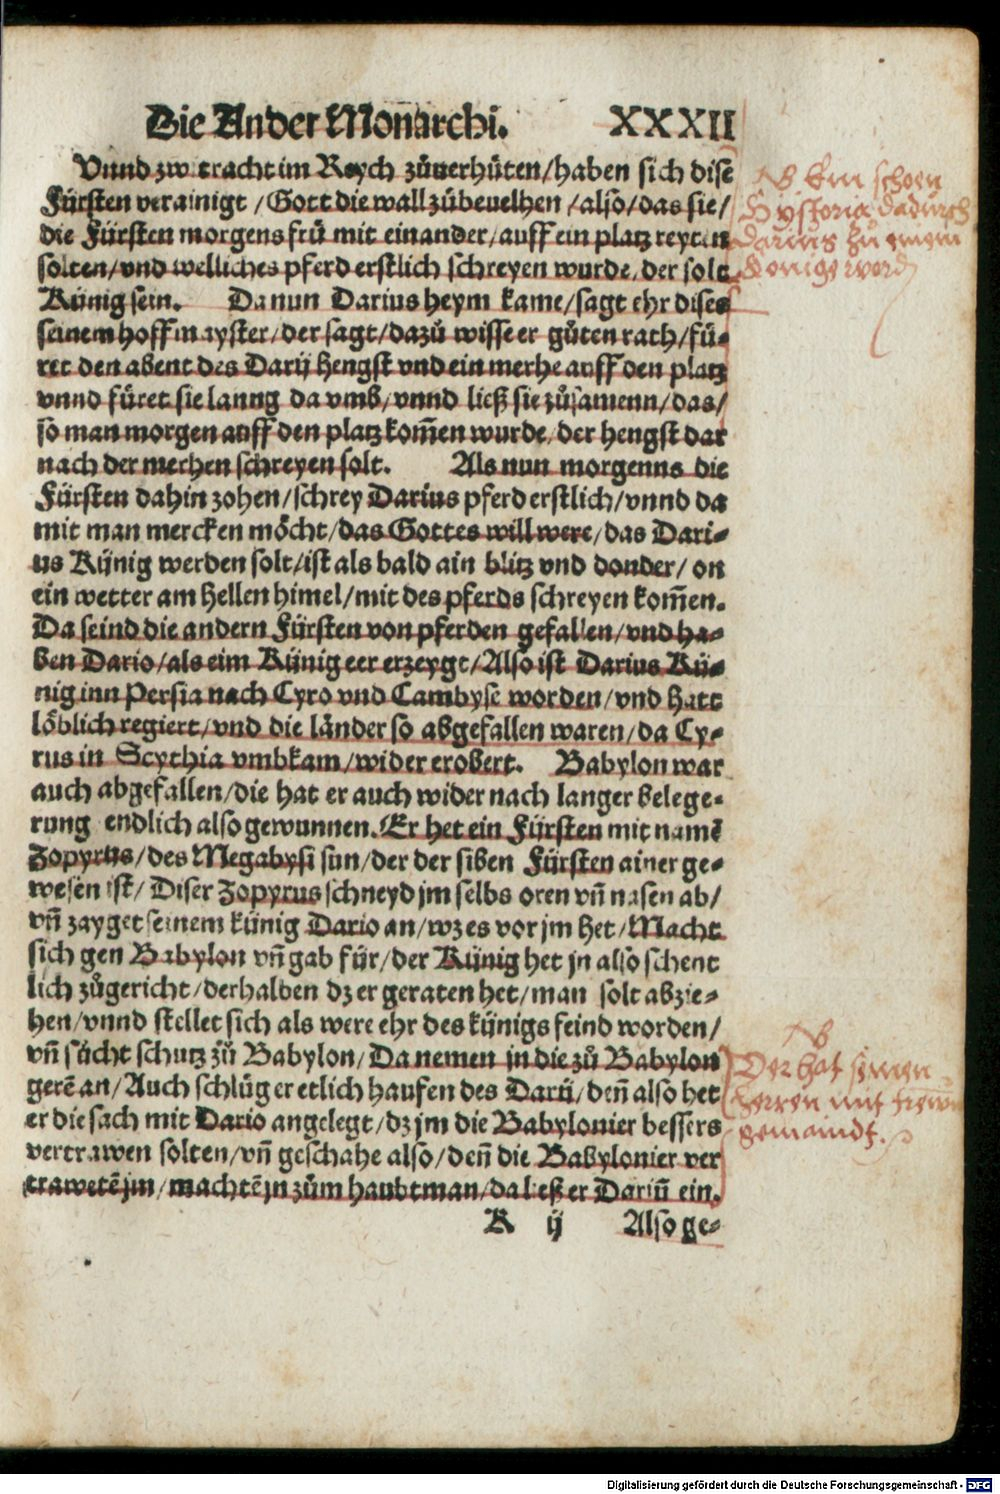 Die Ander Monarchi. XXXII
Vnnd zwitracht im Reych zůuerhüten/haben sich dise
Fürsten verainigt /Gott die wall zůbeuelhen /also/das sie/
die Fürsten morgens frů mit einander/auff ein platz reyten
solten/vnd welliches pferd erstlich schreyen wurde, der solt
Künig sein. Da nun Darius heym kame/sagt ehr dises
seinem hoffmayster/der sagt/dazů wisse er gůten rath/fü-
ret den abent des Darij hengst vnd ein merhe auff den platz
vnnd füret sie lanng da vmb/vnnd ließ sie zůsamenn/das/
so man morgen auff den platz kom̃en wurde, der hengst dar
nach der merhen schreyen solt. Als nun morgenns die
Fürsten dahin zohen/schrey Darius pferd erstlich/vnnd da
mit man mercken möcht/das Gottes will were/das Dari-
us Künig werden solt/ist als bald ain blitz vnd donder/ on
ein wetter am hellen himel/mit des pferds schreyen kom̃en.
Da seind die andern Fürsten von pferden gefallen/vnd ha-
ben Dario/als eim Künig eer erzeygt/Also ist Darius Kü-
nig inn Persia nach Cyro vnd Cambyse worden/vnd hatt
löblich regiert/vnd die länder so abgefallen waren/da Cy-
rus in Scythia vmbkam/wider erobert. Babylon war
auch abgefallen/die hat er auch wider nach langer belege-
rung endlich also gewunnen. Er het ein Fürsten mit namẽ
Zopyrus/des Megabysi sun/der der siben Fürsten ainer ge-
wesen ist/ Diser Zopyrus schneyd jm selbs oren vñ nasen ab/
vñ zayget seinem künig Dario an/wz es vor jm het/Macht
sich gen Babylon vñ gab für/der Künig het jn also schent
lich zůgericht/derhalben dz er geraten het/man solt abzie-
hen/vnnd stellet sich als were ehr des künigs feind worden/
vñ sůcht schutz zů Babylon/Da nemen jn die zů Babylon
gerẽ an/Auch schlůg er etlich haufen des Darij/deñ also het
er die sach mit Dario angelegt/dz jm die Babylonier bessers
vertrawen solten/vñ geschahe also/deñ die Babylonier ver
trawetẽ jm/machtẽ jn zům haubtman/da ließ er Dariũ ein.
K ij Also ge-
NB Ein schoen
Hystoria dadurch
Darius zu einem
Konige word
NB
Der hat seinen
herren mit trewen
gemaindt.
Digitalisierung gefördert durch die Deutsche Forschungsgemeinschaft - DFG